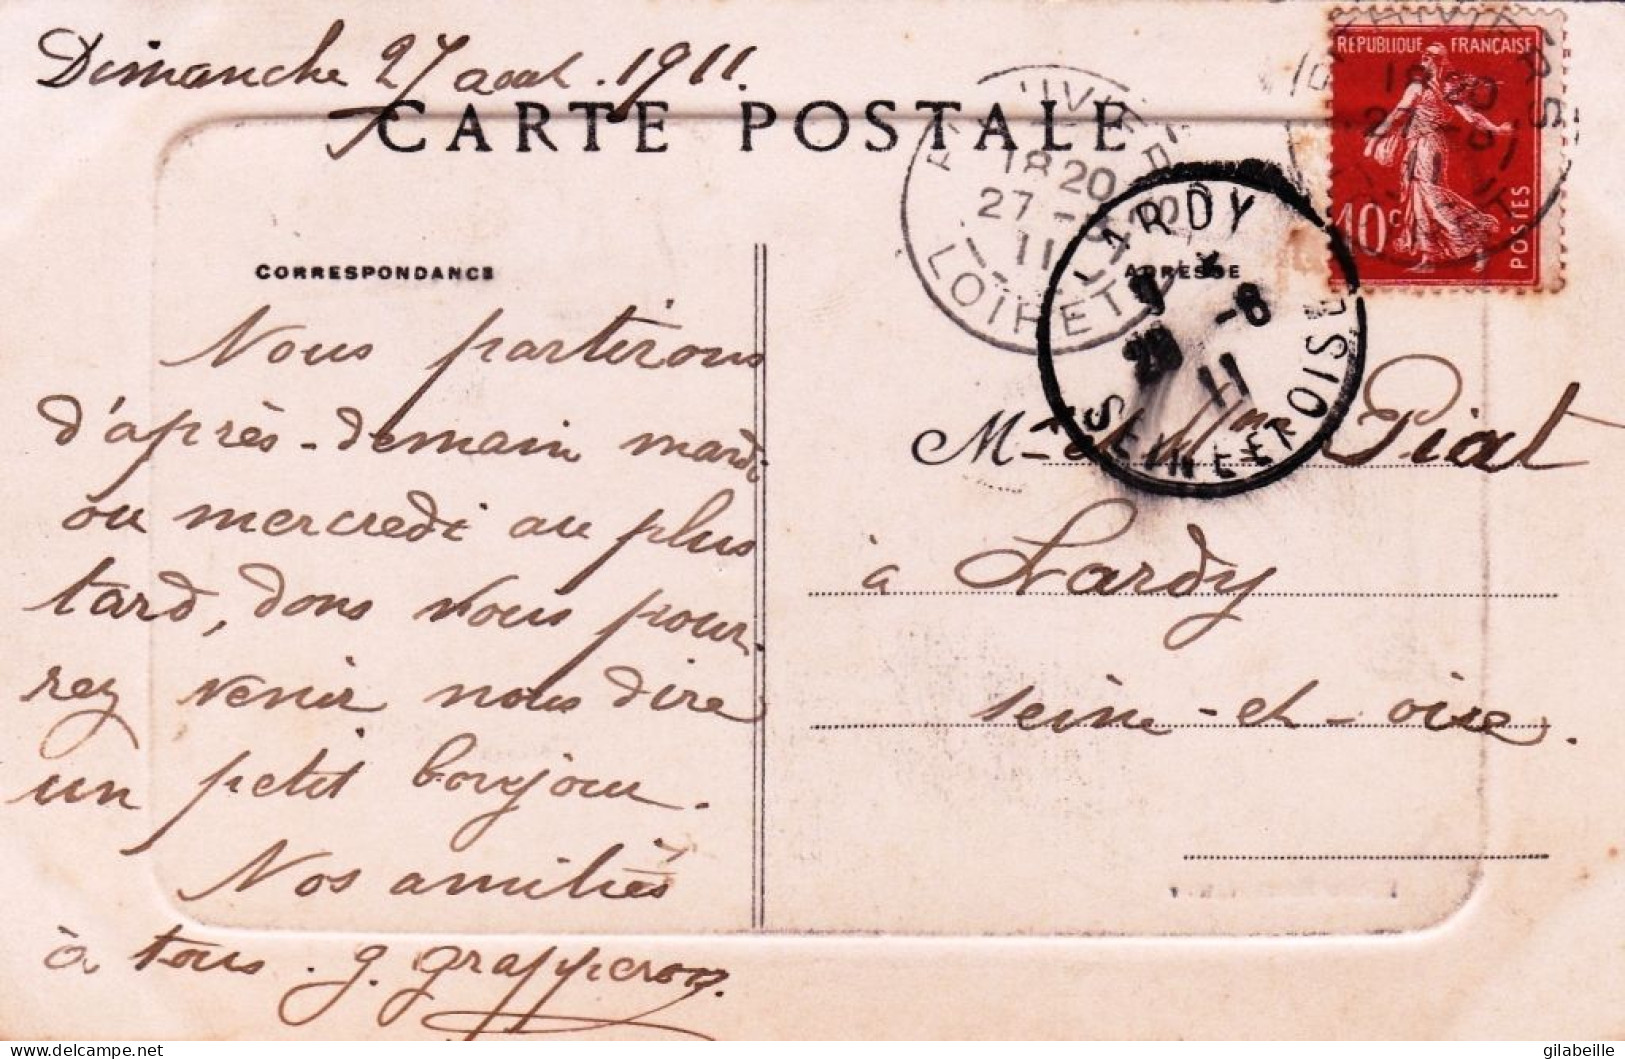 Dimanche 27 août 1911.
CARTE POSTALE
CORRESPONDANCE
Nous partirons
d'après-demain mardi
ou mercredi au plus
tard, dons vous pour-
rez venir nous dire
un petit bonjour.
Nos amitiés
à tous. g. grapperon.
REPUBLIQUE FRANÇAISE
10c
POSTES
18 20
27 -8
11
LOIRET
18 20
27 -8
11
LARDY
9
28 -8
11
SEINE ET OISE
ADRESSE
M. et Mme Piat
à Lardy
seine-et-oise.
gilabeille